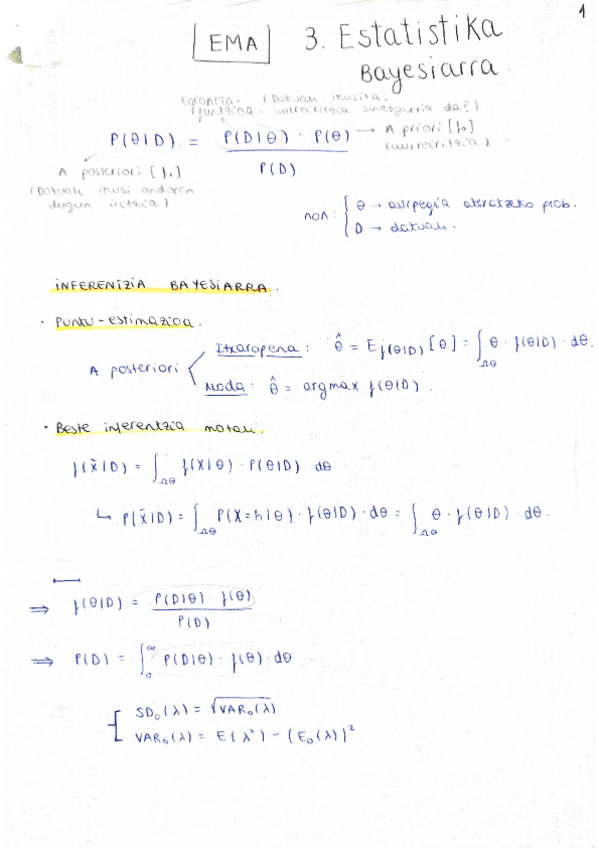 1
EMA 3. Estatistika
Bayesiarra.
Egiantza. (Datuak ikusita,
funtzioa. aurreiritzia sinesgarria da?)
P(θ|D) = P(D|θ) · P(θ) / P(D) → A priori [f.]
(aurreiritzia)
A posteriori [f.]
(Datuak ikusi ondoren
dugun iritzia)
non: { θ → aurpegia ateratzeko prob.
D → datuak.
INFERENTZIA BAYESIARRA.
· Puntu-estimazioa.
A posteriori
Itxaropena: θ̂ = E f(θ|D) [θ] = ∫Ωθ θ · f(θ|D) · dθ.
Moda: θ̂ = argmax f(θ|D).
· Beste inferentzia motak.
f(x̃|D) = ∫Ωθ f(x|θ) · P(θ|D) dθ
↳ P(x̃|D) = ∫Ωθ P(X=h|θ) · f(θ|D) · dθ = ∫Ωθ θ · f(θ|D) · dθ.
⇒ f(θ|D) = P(D|θ) · f(θ) / P(D)
⇒ P(D) = ∫₀^∞ P(D|θ) · f(θ) · dθ
{ SD₀(λ) = √VAR₀(λ)
VAR₀(λ) = E(λ²) - (E₀(λ))²